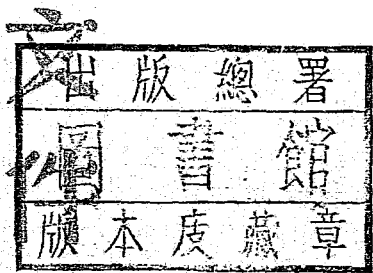 文
出版總署
圖書館
版本庋藏章